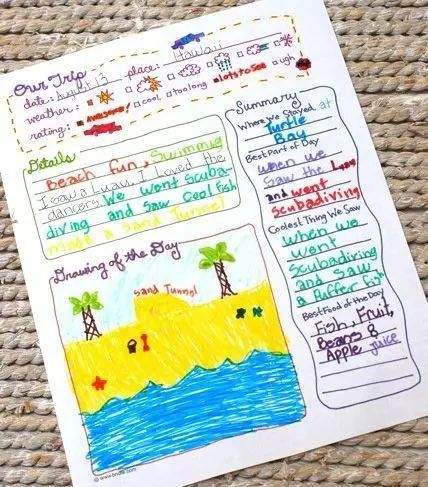 Our Trip
date: August 13 place: Hawaii
weather:
rating: awesome! cool too long lots to see ugh
Details
Beach fun, Swimming
I saw a Luau, I Loved the
dancers. We went Scuba-
diving and Saw Cool Fish
made a Sand Tunnel
Drawing of the Day
Sand Tunnel
Summary
Where We Stayed at
Turtle
Bay
Best Part of Day
when we
Saw the Luau
and went
Scubadiving
Coolest Thing We Saw
When we
went
Scubadiving
and Saw
a Puffer Fish
Best Food of the Day
Fish, Fruit,
Beans &
Apple juice